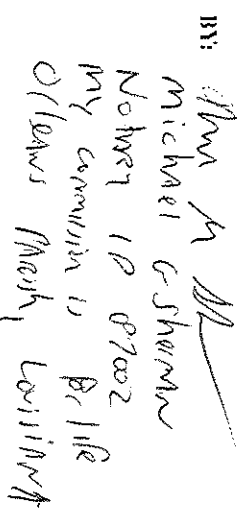 BY:
Michael G Sherman
Notary ID 87002
My commission is for life
Orleans Parish, Louisiana